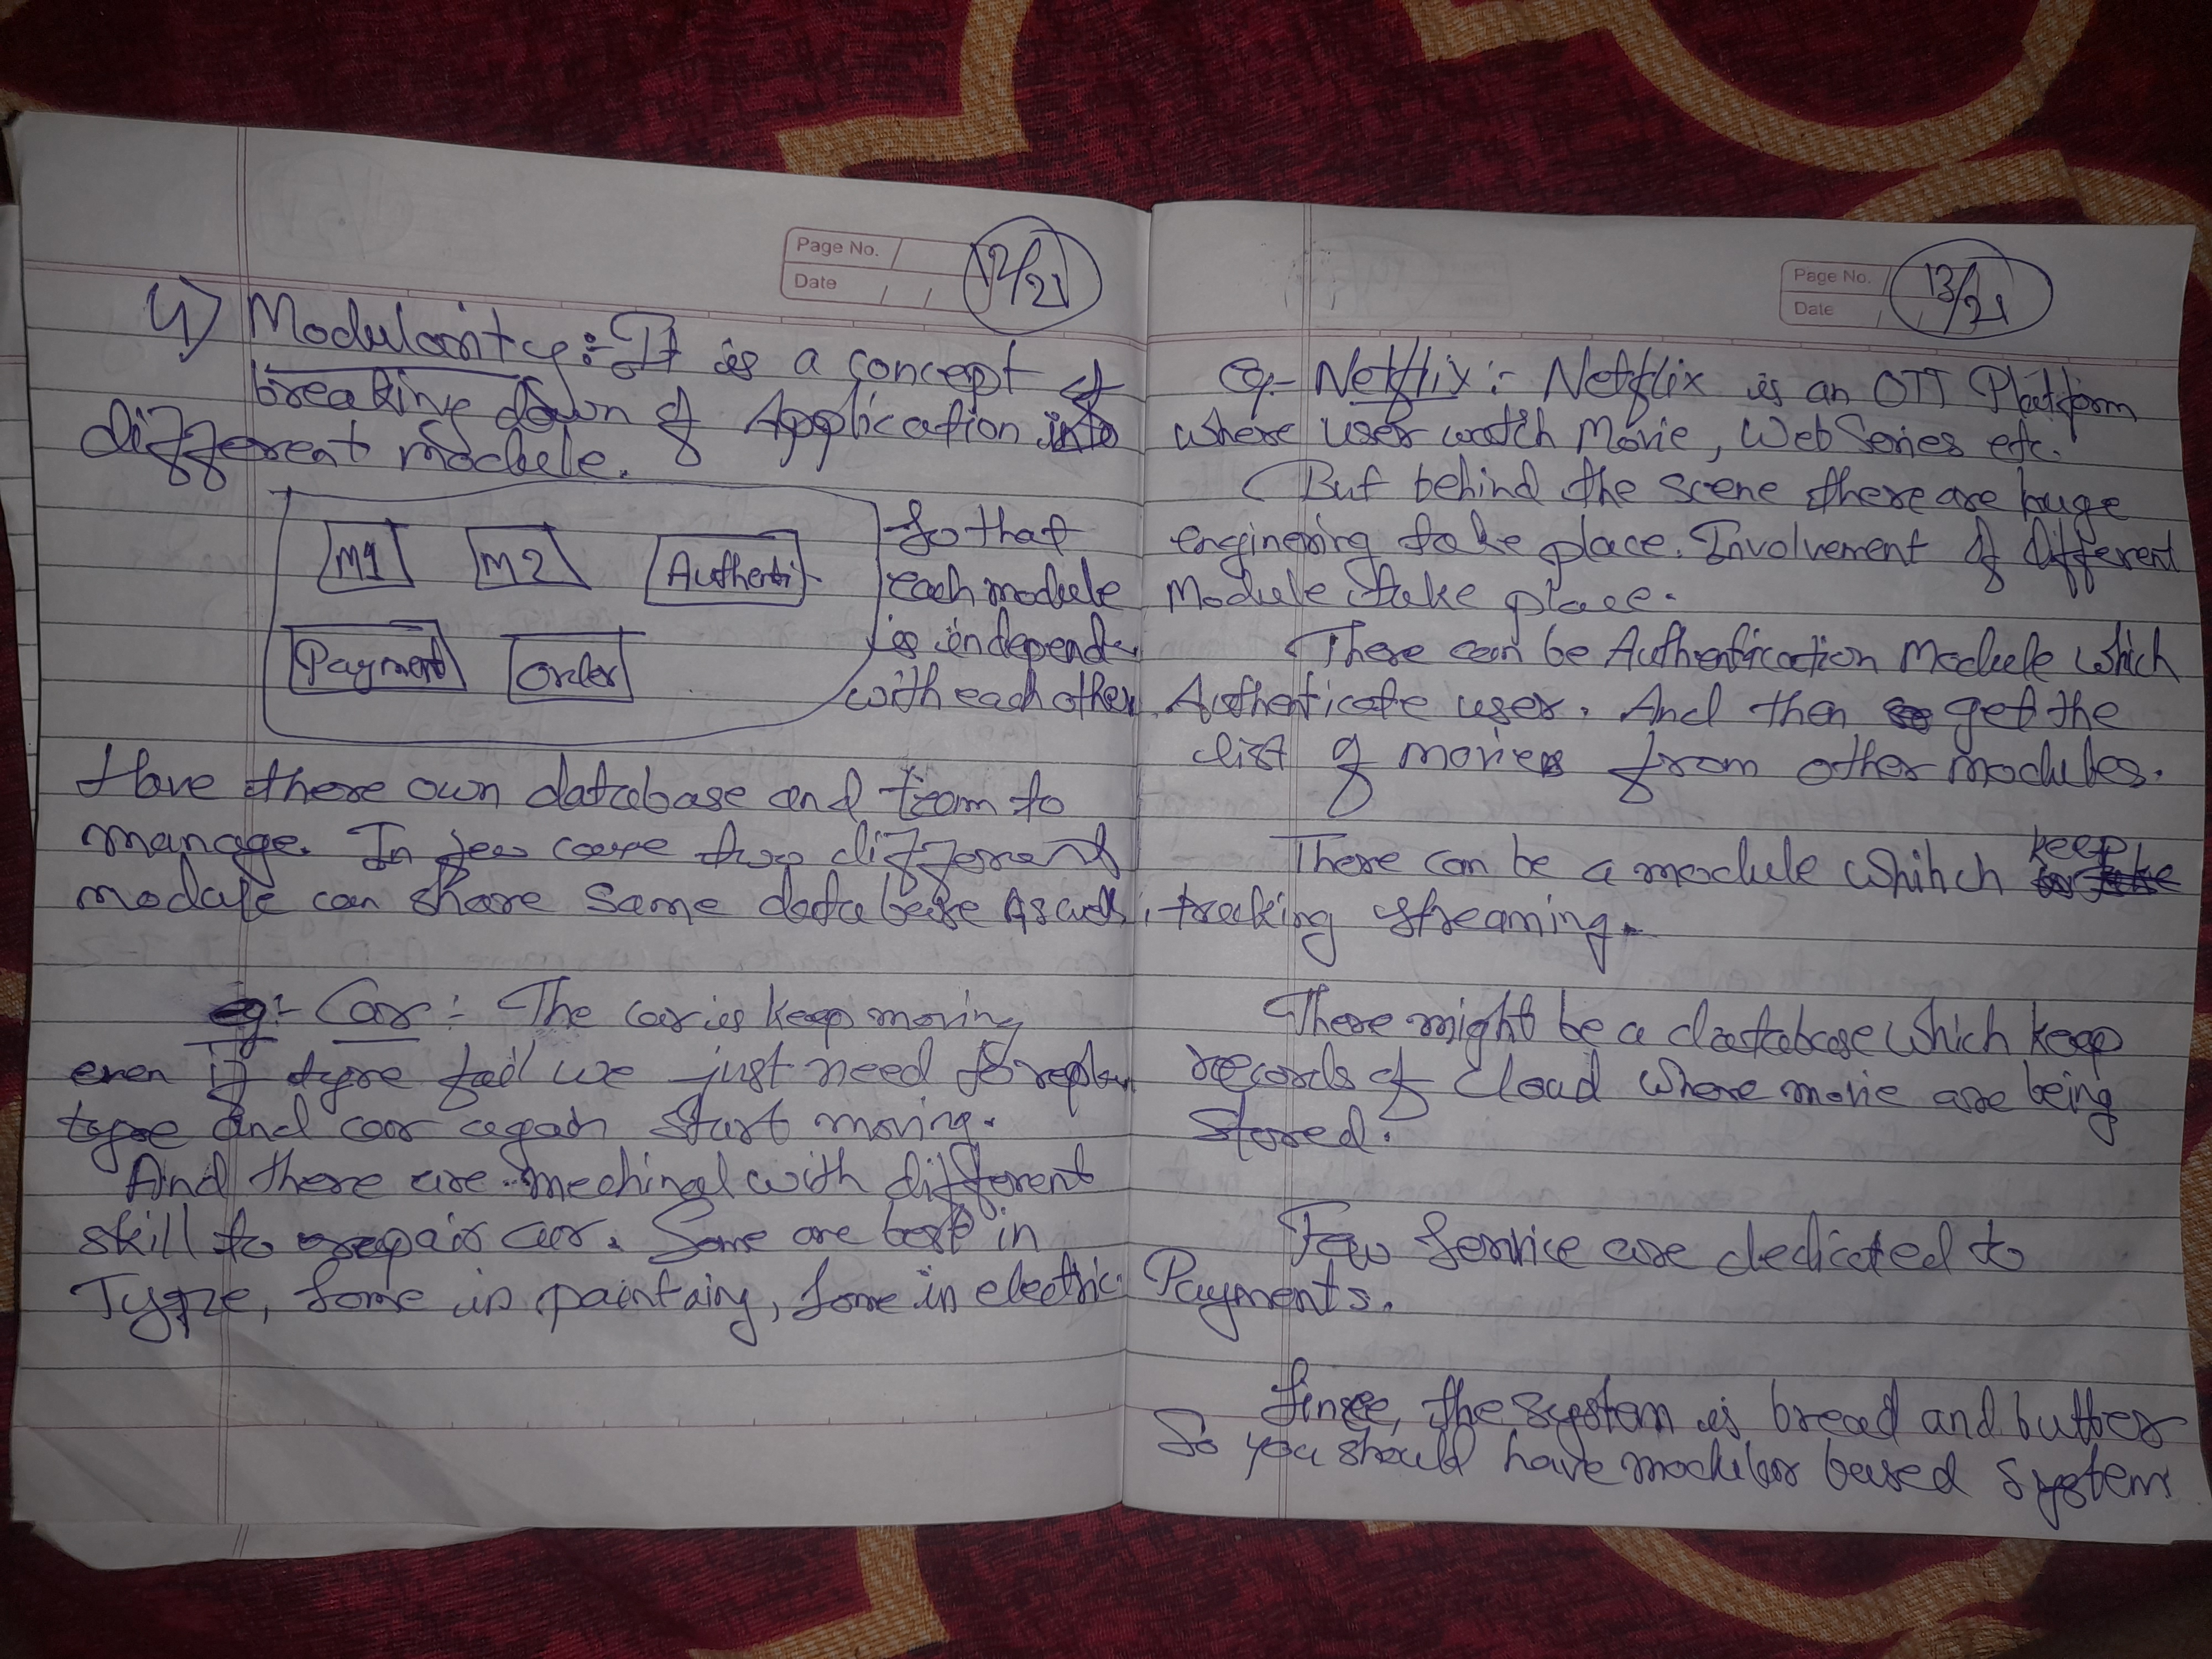 Page No.
Date
12/21
4) Modularity :- It is a concept of
breaking down of Application into
different module.
M1 M2 Authenti
Payment Order
So that
each module
is independen
with each other
have there own database and team to
manage. In few case two different
module can share same database as well.
eg:- Car :- The car is keep moving
even if tyre fail we just need to replace
type and car again start moving.
And there are mechinal with different
skill to repair car. Some are best in
Tyre, some in painting, some in electric
Page No.
Date
13/21
eg:- Netflix :- Netflix is an OTT Platform
where user watch Movie, Web Series etc.
But behind the scene there are huge
enginering take place. Involvement of different
Module take place.
There can be Authentication Module which
Authenticate user. And then get the
list of movies from other modules.
There can be a module whihch keep
tracking streaming.
There might be a database which keep
records of cloud where movie are being
stored.
Few Service are dedicated to
Payments.
Since, the system is bread and butter
So you should have modular based system